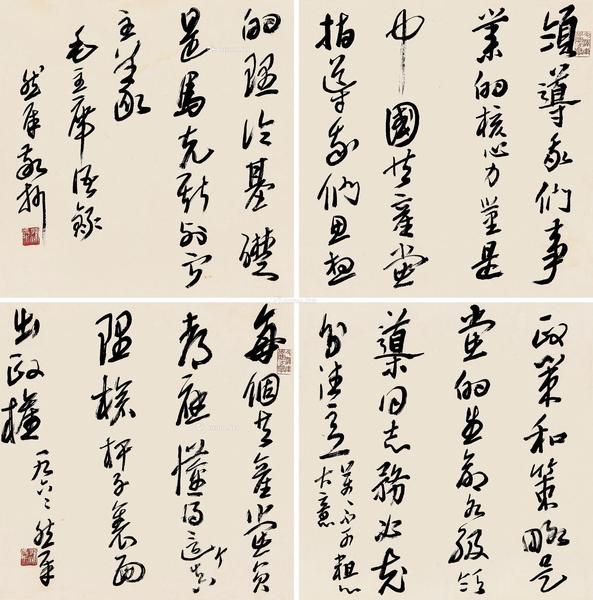 領導我們事
業的核心力量是
中國共產黨
指導我們思想
的理論基礎
是馬克斯列寧
主義
毛主席語錄
敬抄
政策和策略是
黨的生命各級領
導同志務必充
分注意
萬萬不可粗心
大意
每個共產黨員
都應懂得這个真
理槍杆子裏面
出政權
一九六